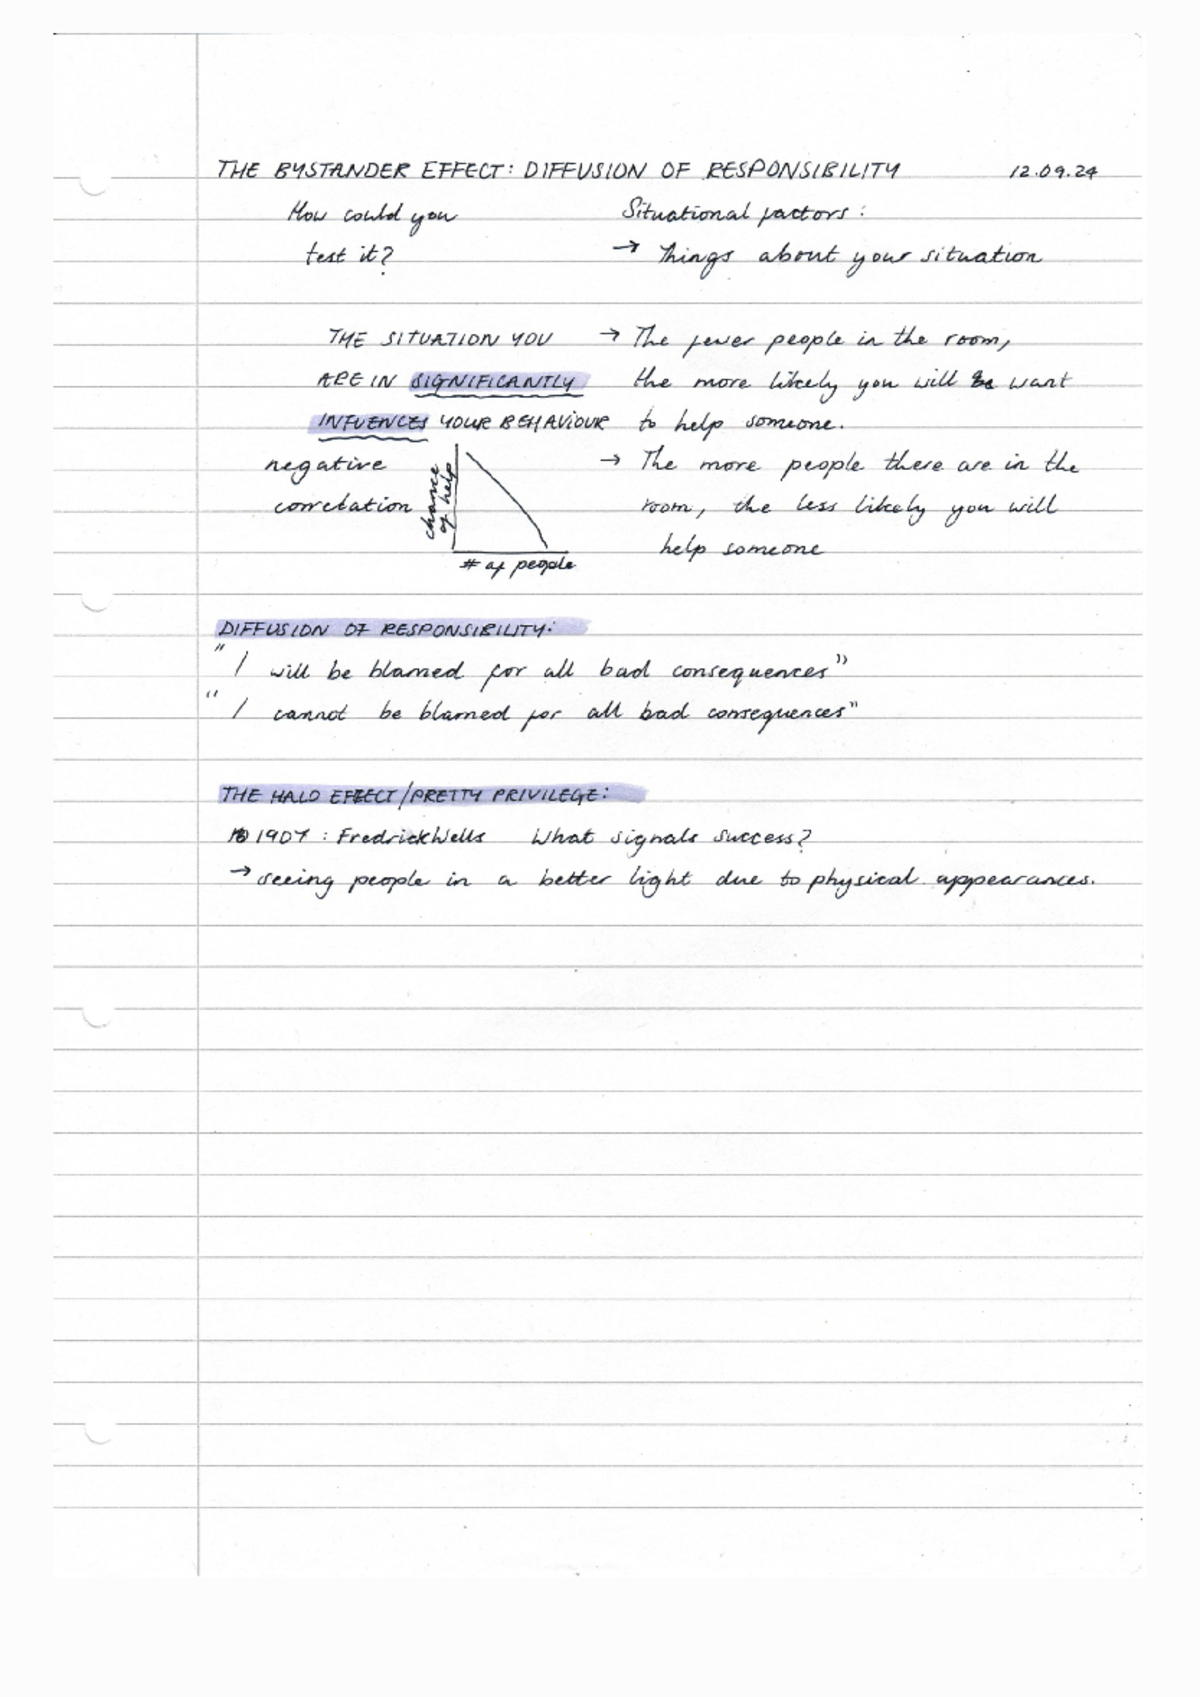 THE BYSTANDER EFFECT: DIFFUSION OF RESPONSIBILITY 12.09.24
How could you
test it?
Situational factors:
→ Things about your situation
THE SITUATION YOU
ARE IN SIGNIFICANTLY
INFUENCES YOUR BEHAVIOUR
→ The fewer people in the room,
the more likely you will want
to help someone.
negative
correlation
chance
of help
# of people
→ The more people there are in the
room, the less likely you will
help someone
DIFFUSION OF RESPONSIBILITY:
"I will be blamed for all bad consequences"
"I cannot be blamed for all bad consequences"
THE HALO EFFECT/PRETTY PRIVILEGE:
1907: Fredrick Wells What signals success?
→ seeing people in a better light due to physical appearances.